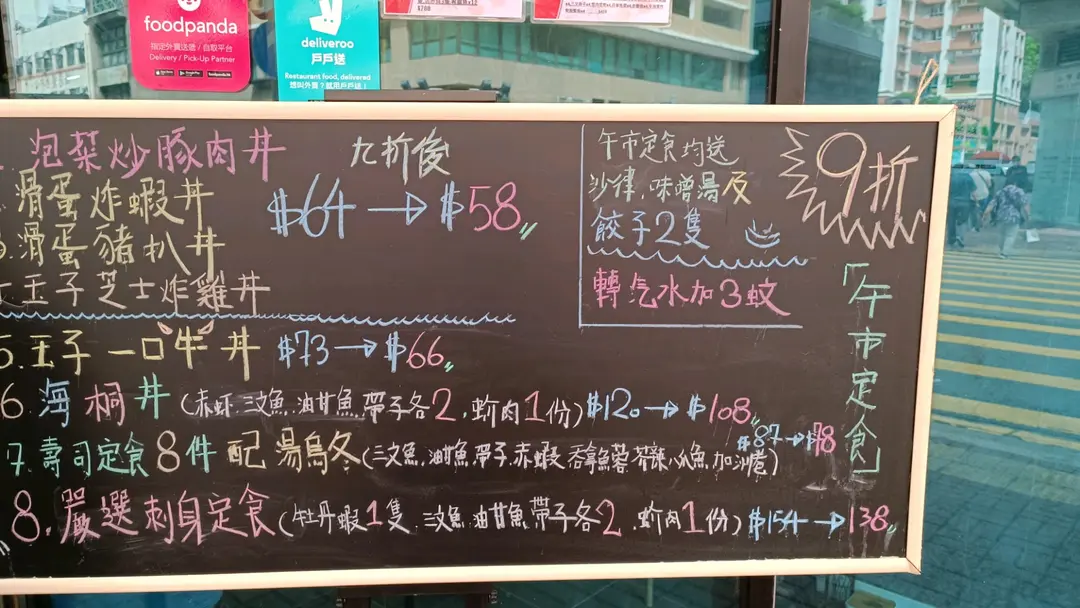 foodpanda
指定外賣速遞 / 自取平台
Delivery / Pick-Up Partner
deliveroo
戶戶送
Restaurant food, delivered
想叫外賣？就用戶戶送！
泡菜炒豚肉丼
九折後
滑蛋炸蝦丼
$64 → $58
滑蛋豬扒丼
玉子芝士炸雞丼
5. 玉子一口牛丼 $73 → $66
6. 海桐丼 (赤虾.三文魚.油甘魚.帶子各2, 蚧肉1份) $120 → $108
7. 壽司定食8件 配 湯烏冬 (三文魚, 油甘魚, 帶子, 赤蝦, 吞拿魚蓉
加州卷) $87 → $78
8. 嚴選刺身定食 (牡丹蝦1隻, 三文魚, 油甘魚, 帶子各2, 蚧肉1份) $154 → 138
午市定食均送
沙律, 味噌湯及
餃子2隻
轉汽水加3蚊
9折
「午市定食」